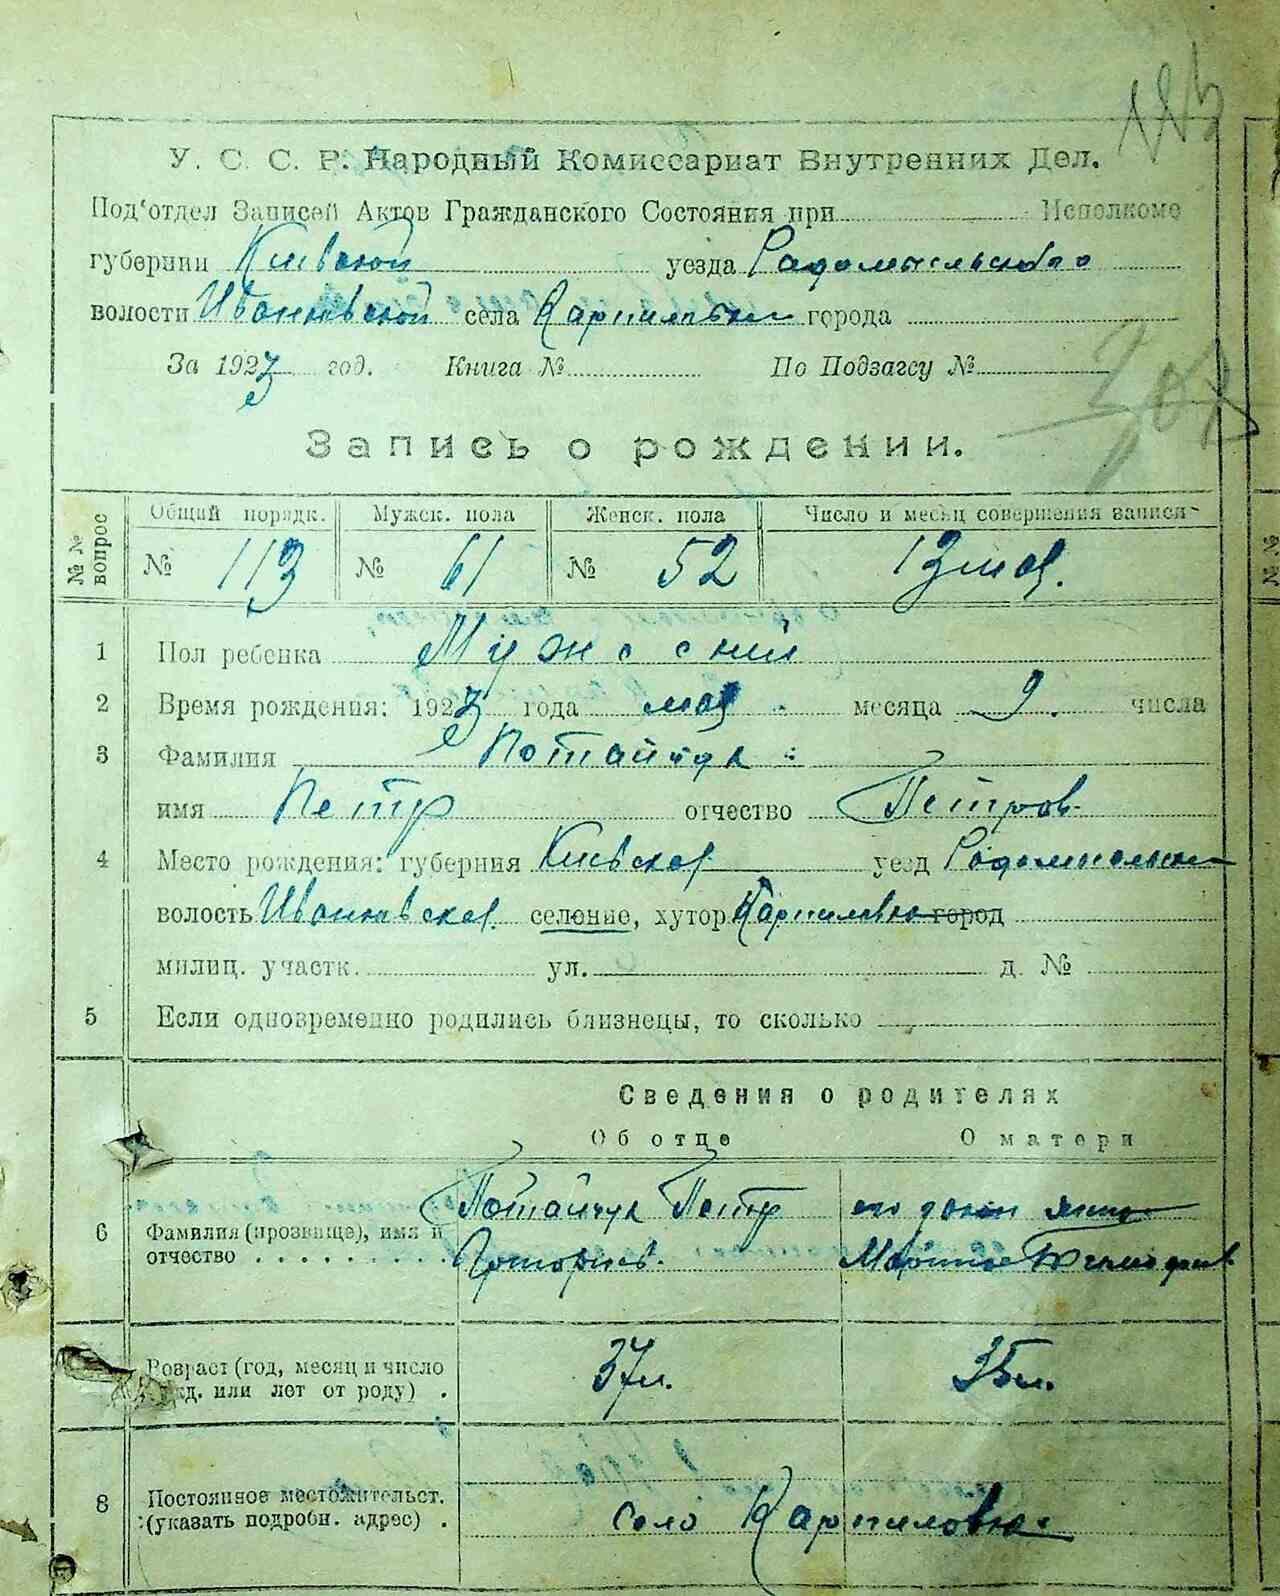 У. С. С. Р. Народный Комиссариат Внутренних Дел.
Под'отдел Записей Актов Гражданского Состояния при Исполкоме
губернии Киевской уезда Радомысльского
волости Иванковской села Карпиловки города
За 1923 год. Книга № По Подзагсу №
Запись о рождении.
№ № вопрос
Общий порядк. Мужск. пола Женск. пола Число и месяц совершения записи
№ 113 № 61 № 52 13 мая.
1 Пол ребенка Мужской
2 Время рождения: 1923 года мая месяца 9. числа
3 Фамилия Потайчук
имя Петр отчество Петров.
4 Место рождения: губерния Киевская уезд Радомысльский
волость Иванковская селение, хутор Карпиловка город
милиц. участк. ул. д. №
5 Если одновременно родились близнецы, то сколько
Сведения о родителях
Об отце О матери
6 Фамилия (прозвище), имя и Потайчук Петр его жена
отчество Марина
Возраст (год, месяц и число 37 л. 35 л.
или лет от роду)
8 Постоянное местожительст.
(указать подробн. адрес) Село Карпиловка